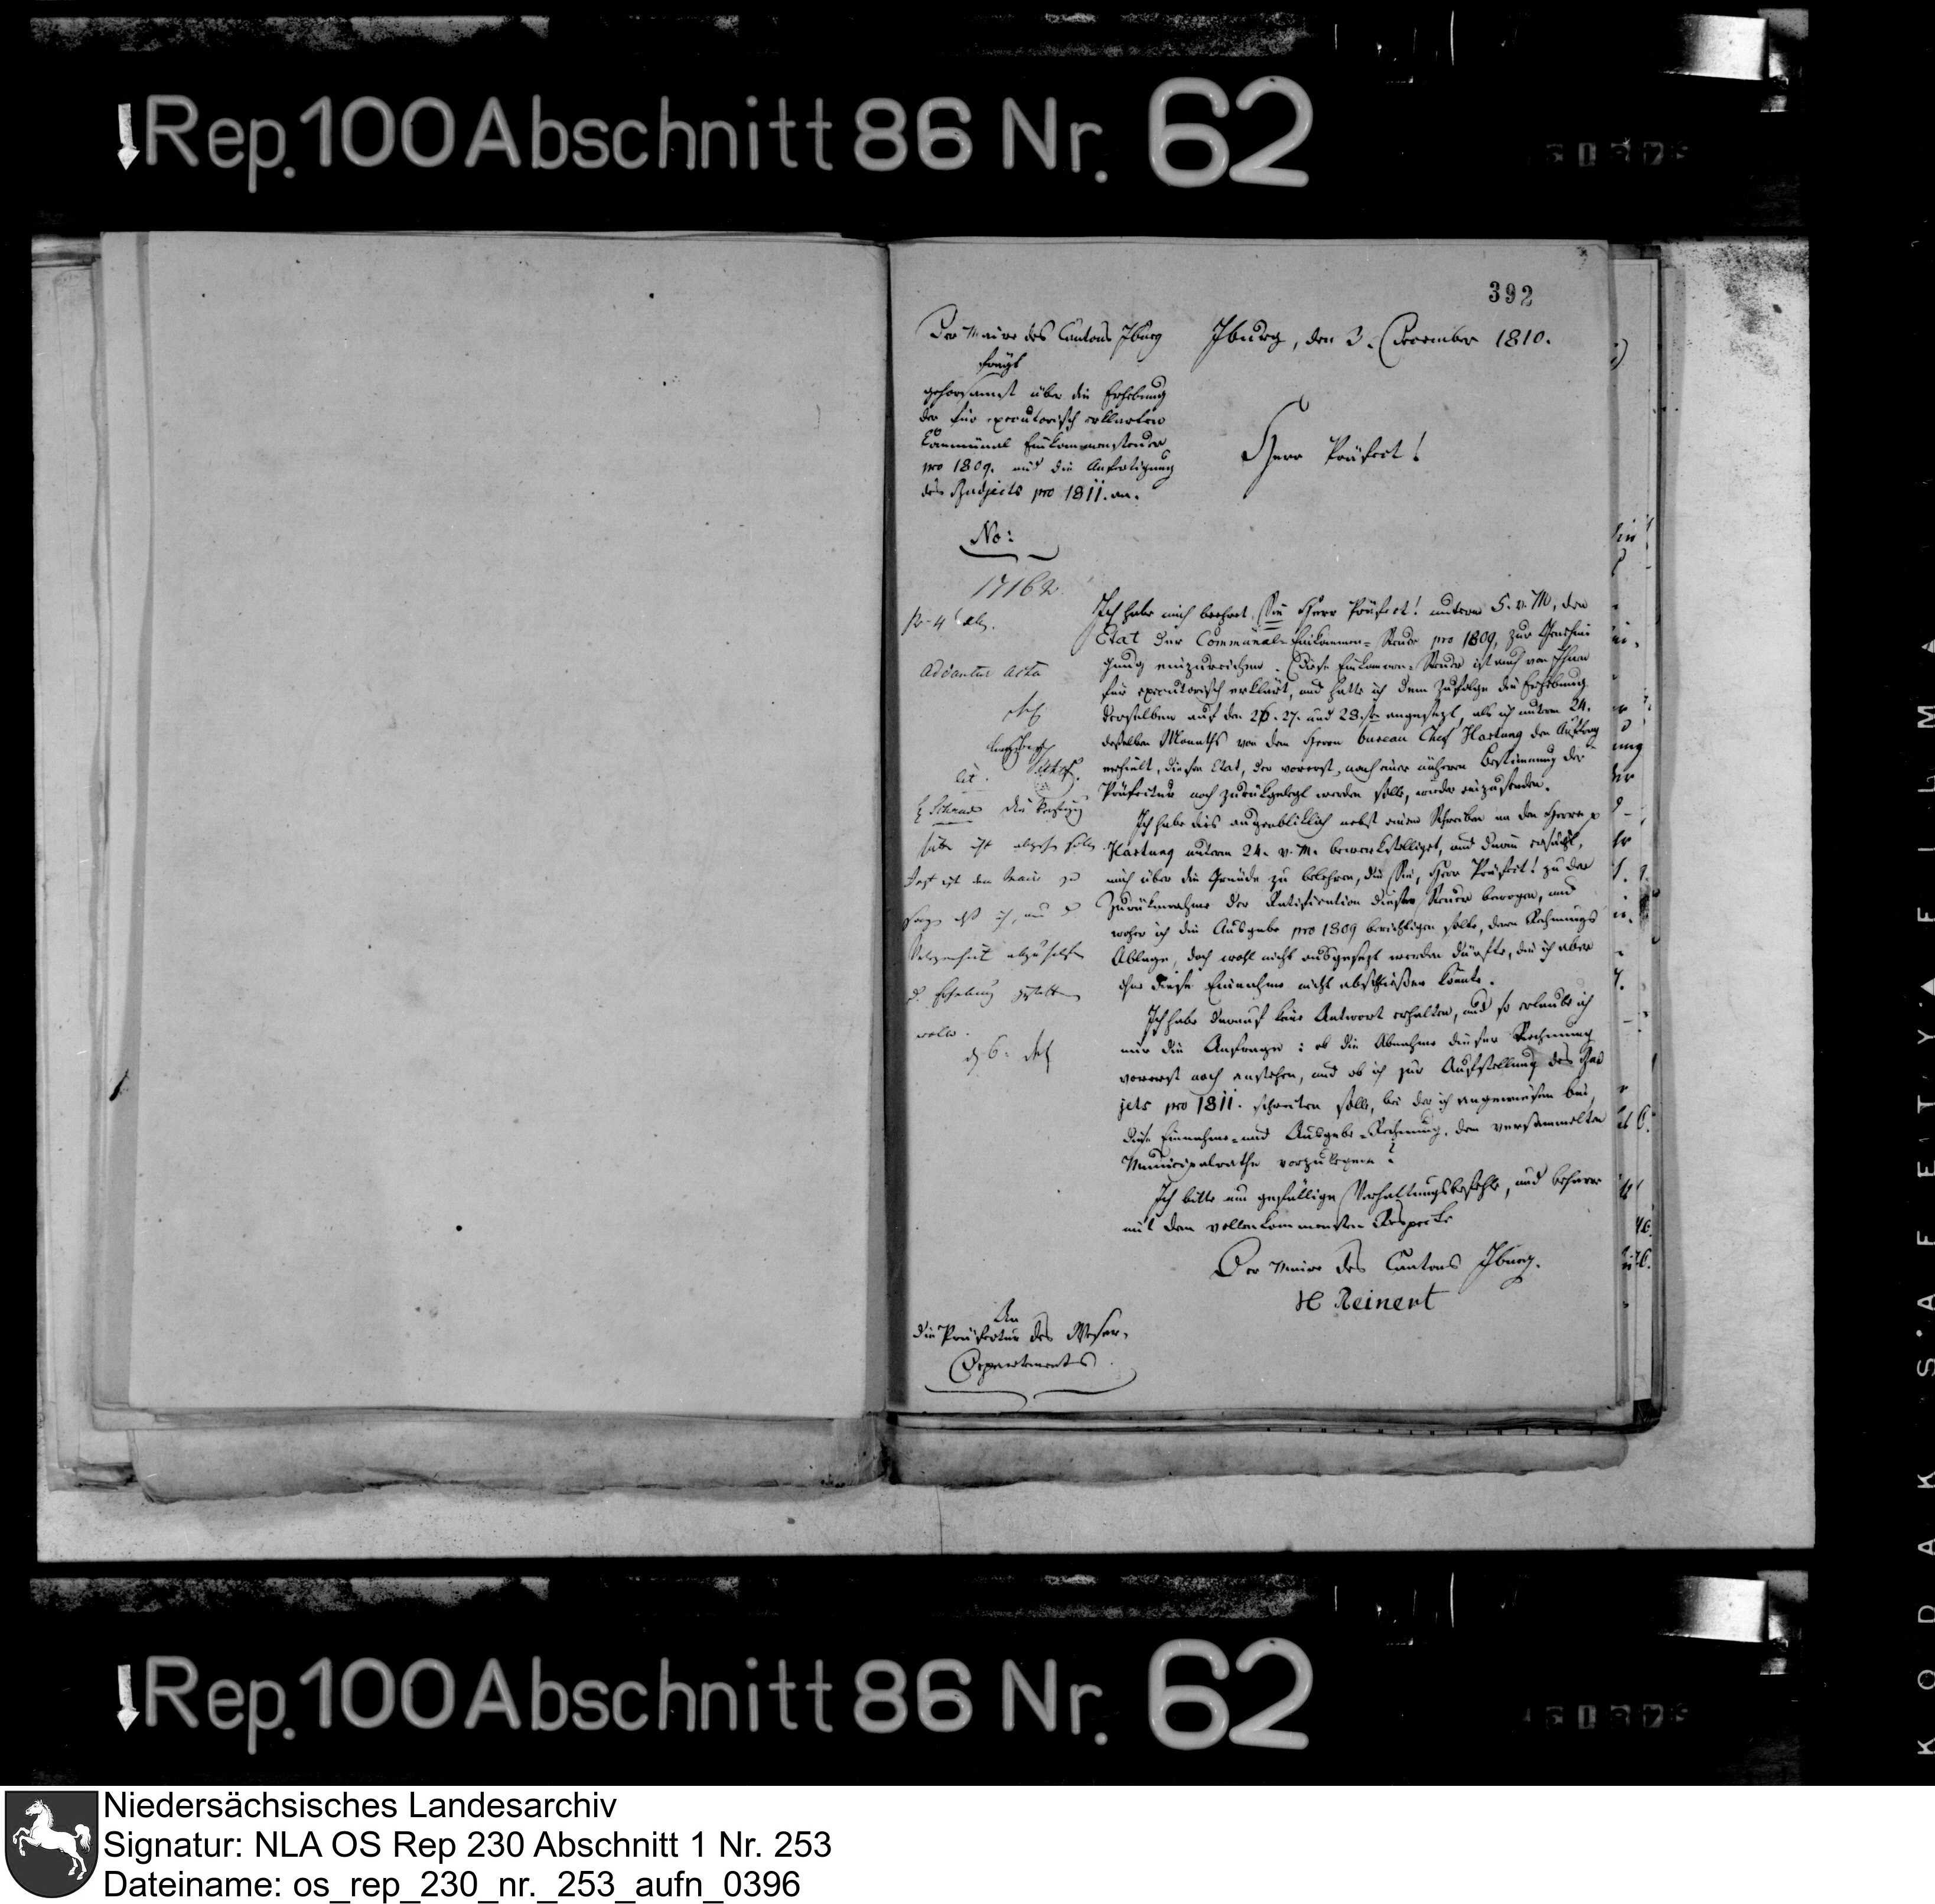 Rep. 100 Abschnitt 86 Nr. 62
392
Der Maire des Cantons Jburg
frägt
gehorsamst über die Erhebung
der für executorisch erklärten
Communal Einkommensteuer
pro 1809. und die Anfertigung
des Budjets pro 1811. an.
Jburg, den 3. December 1810.
Herr Präfect!
No:
17162
Pr. 4
addantur acta
Ich habe mich beehret, Sie Herr Präfect! unterm 5. v. M, den
Etat der Communal-Einkommen-Steuer pro 1809, zur Genehmi
gung einzureichen. Diese Einkommen-Steuer ist auch von Ihnen
für executorisch erklärt, und hatte ich dem zufolge die Erhebung
derselben auf den 26. 27. und 28. angesezt, als ich unterm 24.
desselben Monaths von dem Herrn bureau Chef Hartung den Auftrag
erhielt, diesen Etat, der vorerst, nach einer näheren Bestimmung der
Präfectur noch zurückgelegt werden solle, wieder einzusenden.
Ich habe dies augenbliklich nebst einem Schreiben an den Herrn
Hartung unterm 24. v. M. bewerkstelliget, und darin ersucht,
mich über die Gründe zu belehren, die Sie, Herr Präfect! zu der
Zurüknahme der Ratification dieser Steuer bewogen, und
woher ich die Ausgabe pro 1809 berichtigen solle, deren Rechnungs
Ablage, doch wohl nicht ausgesezt werden dürfte, die ich aber
ohne diese Einnahme nicht abschließen könnte.
Ich habe darauf keine Antwort erhalten, und so erlaube ich
mir die Anfrage: ob die Abnahme dieser Rechnung
vorerst noch anstehen, und ob ich zur Aufstellung des Bud
jets pro 1811. schreiten solle, bei der ich angewiesen bin,
diese Einnahme- und Ausgabe-Rechnung, dem versammelten
Municipalrathe vorzulegen?
Ich bitte um gefällige Verhaltungsbefehle, und beharre
mit dem vollenkommensten Respecte
Der Maire des Cantons Jburg.
H Reinert
An
die Präfectur des Weser-
Departements
Rep. 100 Abschnitt 86 Nr. 62
KODAK SAFETY FILM
Niedersächsisches Landesarchiv
Signatur: NLA OS Rep 230 Abschnitt 1 Nr. 253
Dateiname: os_rep_230_nr._253_aufn_0396